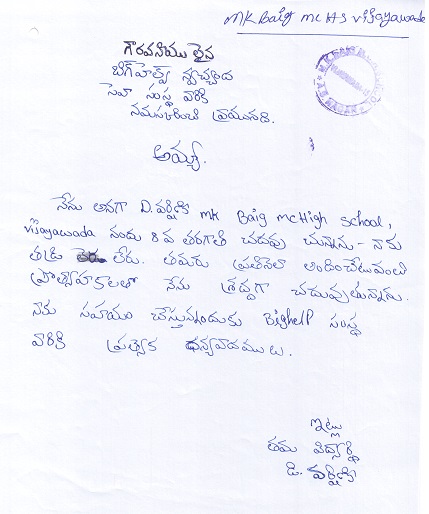 MK Baig MCHS Vijayawada
గౌరవనీయు లైన
బిగ్‌హెల్ప్ స్వచ్ఛంద
సేవా సంస్థ వారికి
నమస్కరించి వ్రాయునది.
అయ్యా.
నేను అనగా D. వర్షిణి MK Baig MCHigh School,
Vijayawada నందు 8 వ తరగతి చదువు చున్నాను - నాకు
తండ్రి లేరు. తమరు ప్రతినెలా అందించేటువంటి
ప్రోత్సాహకాలతో నేను శ్రద్ధగా చదువుతున్నాను.
నాకు సహాయం చేస్తున్నందుకు BigHelp సంస్థ
వారికి ప్రత్యేక ధన్యవాదములు.
ఇట్లు
తమ విద్యార్థి
డి. వర్షిణి